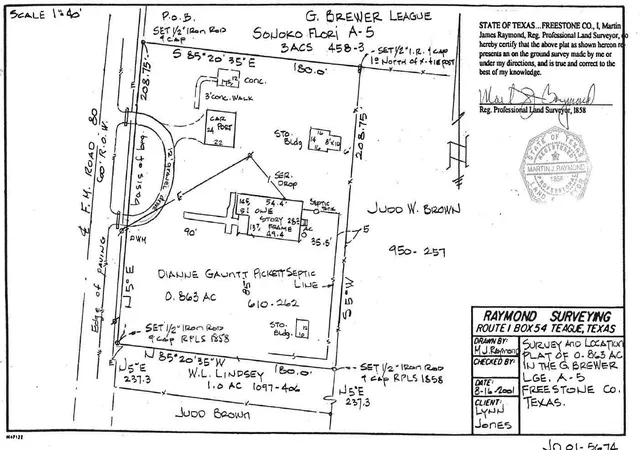 SCALE 1"=40'
P.O.B.
SET 1/2" IRON ROD
& CAP
G. BREWER LEAGUE
SONOKO FLORI A-5
3 ACS 458-3
S 85° 20' 35" E
180.0'
SET 1/2" I.R. & CAP
STATE OF TEXAS...FREESTONE CO., I, Martin
James Raymond, Reg. Professional Land Surveyor, do
hereby certify that the above plat as shown hereon re-
presents an on the ground survey made by me or
under my directions, and is true and correct to the
best of my knowledge.
Reg. Professional Land Surveyor, 1858
STATE OF TEXAS
REGISTERED
MARTIN J. RAYMOND
1858
PROFESSIONAL
LAND SURVEYOR
208.75'
CONC.
3' CONC. WALK
CAR
PORT
24
22
STO.
Bldg
16
14
8'X12'
6
208.75
F.M. ROAD 80
100' R.O.W.
basis of brg
12' gravel drive
SER.
DROP
54.4'
ONE
STORY
FRAME
49.4
SEPTIC
AC
35.5'
90'
PWM
JUDD W. BROWN
5
950-257
Edge of paving
N 5° E
DIANNE GAUNTT PICKETT
SEPTIC
LINE
0.863 AC
85'
610-262
S 5° W
STO.
Bldg.
12
10
SET 1/2" IRON ROD
& CAP RPLS 1858
N 85° 20' 35" W
180.0'
W.L. LINDSEY
1.0 AC 1097-406
SET 1/2" IRON ROD
& CAP RPLS 1858
N 5° E
237.3
N 5° E
237.3
JUDD BROWN
RAYMOND SURVEYING
ROUTE 1 BOX 54 TEAGUE, TEXAS
DRAWN BY:
M.J. Raymond
CHECKED BY:
DATE:
8-16-2001
CLIENT:
LYNN
JONES
SURVEY AND LOCATION
PLAT OF 0.863 AC
IN THE G. BREWER
LGE. A-5
FREESTONE CO.
TEXAS.
JO 01-5674